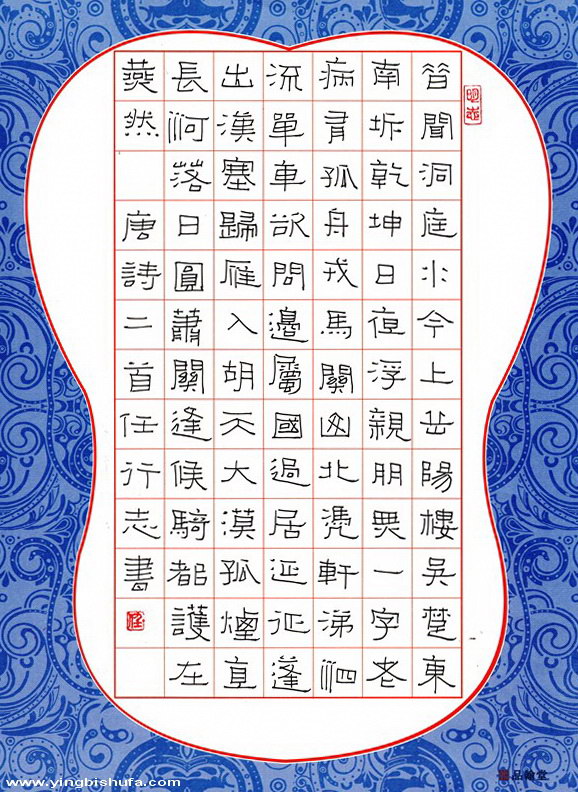 昔聞洞庭水今上岳陽樓吳楚東
南坼乾坤日夜浮親朋無一字老
病有孤舟戎馬關山北憑軒涕泗
流單車欲問邊屬國過居延征蓬
出漢塞歸雁入胡天大漠孤煙直
長河落日圓蕭關逢候騎都護在
燕然 唐詩二首任行志書
品翰堂
www.yingbishufa.com